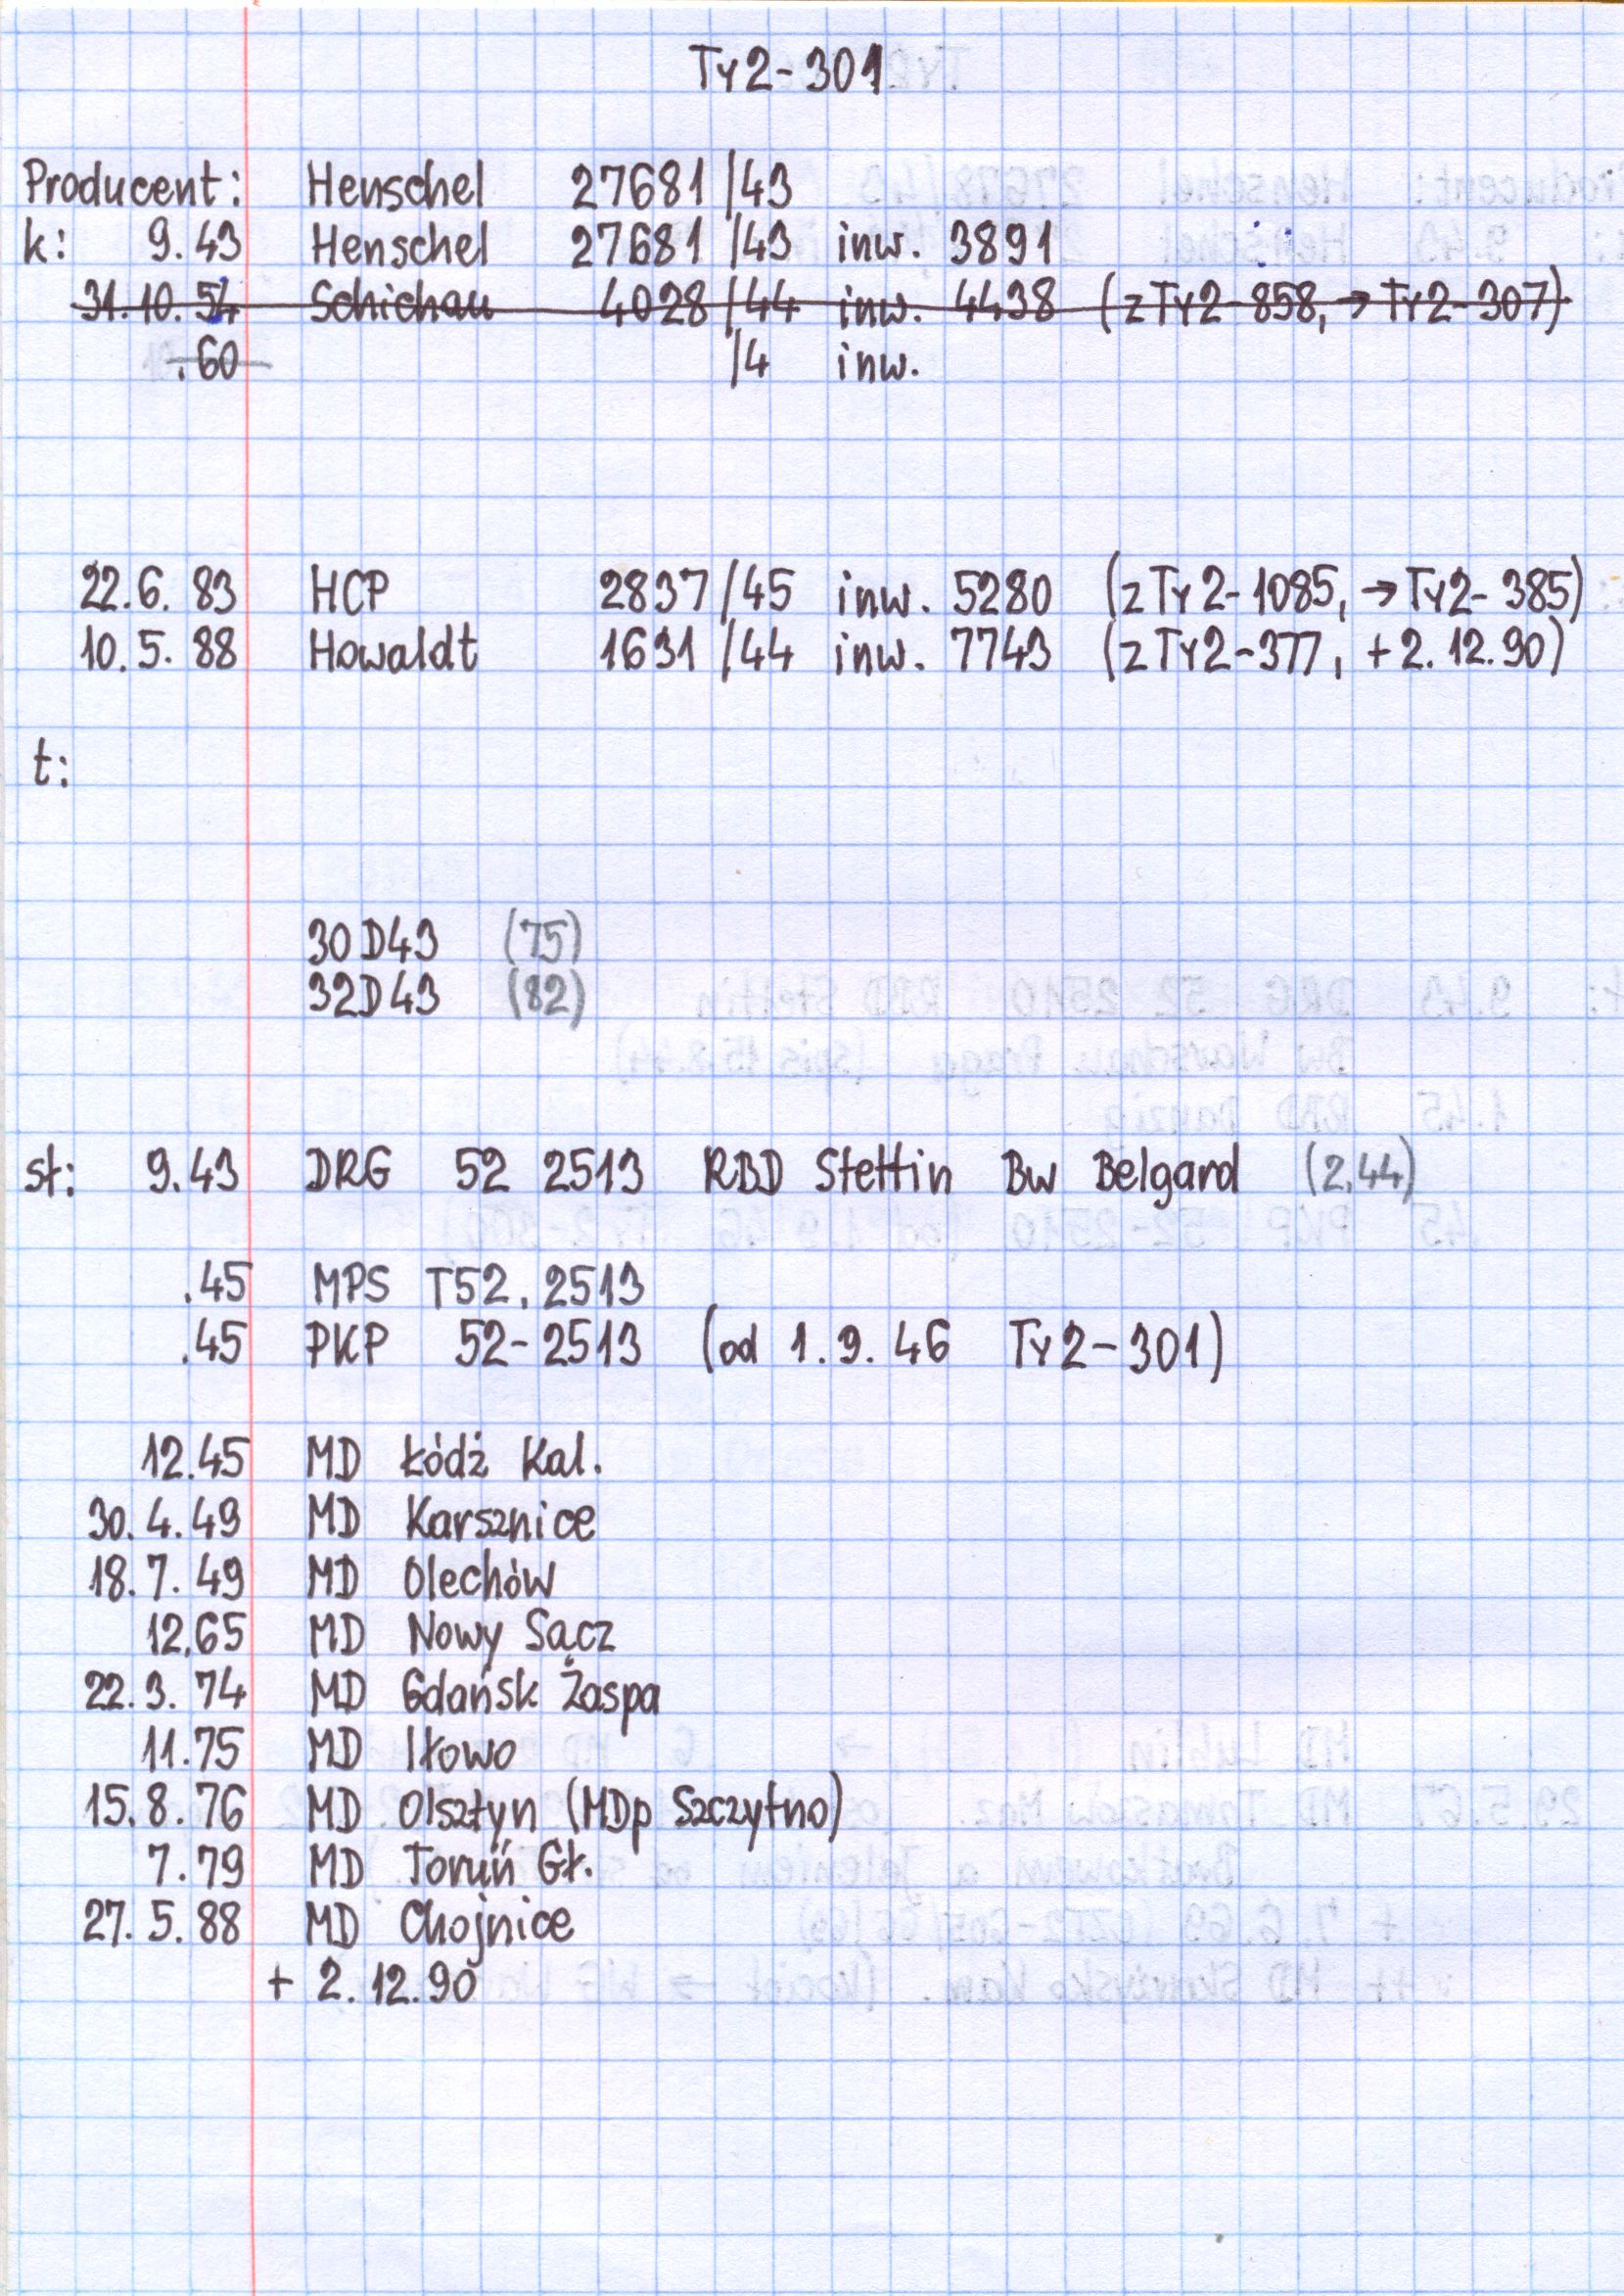 Ty2-301
Producent: Henschel 27681/43
k: 9.43 Henschel 27681/43 inw. 3891
31.10.54 Schichau 4028/44 inw. 4438 (z Ty2-858, → Ty2-307)
.60 /4 inw.
22.6.83 HCP 2837/45 inw. 5280 (z Ty2-1085, → Ty2-385)
10.5.88 Howaldt 1631/44 inw. 7743 (z Ty2-377, +2.12.90)
t:
30D43 (75)
32D43 (82)
st: 9.43 DRG 52 2513 RBD Stettin Bw Belgard (2,44)
.45 MPS T52.2513
.45 PKP 52-2513 (od 1.9.46 Ty2-301)
12.45 MD Łódź Kal.
30.4.49 MD Karsznice
18.7.49 MD Olechów
12.65 MD Nowy Sącz
22.3.74 MD Gdańsk Zaspa
11.75 MD Iłowo
15.8.76 MD Olsztyn (MDp Szczytno)
7.79 MD Toruń Gł.
27.5.88 MD Chojnice
+ 2.12.90